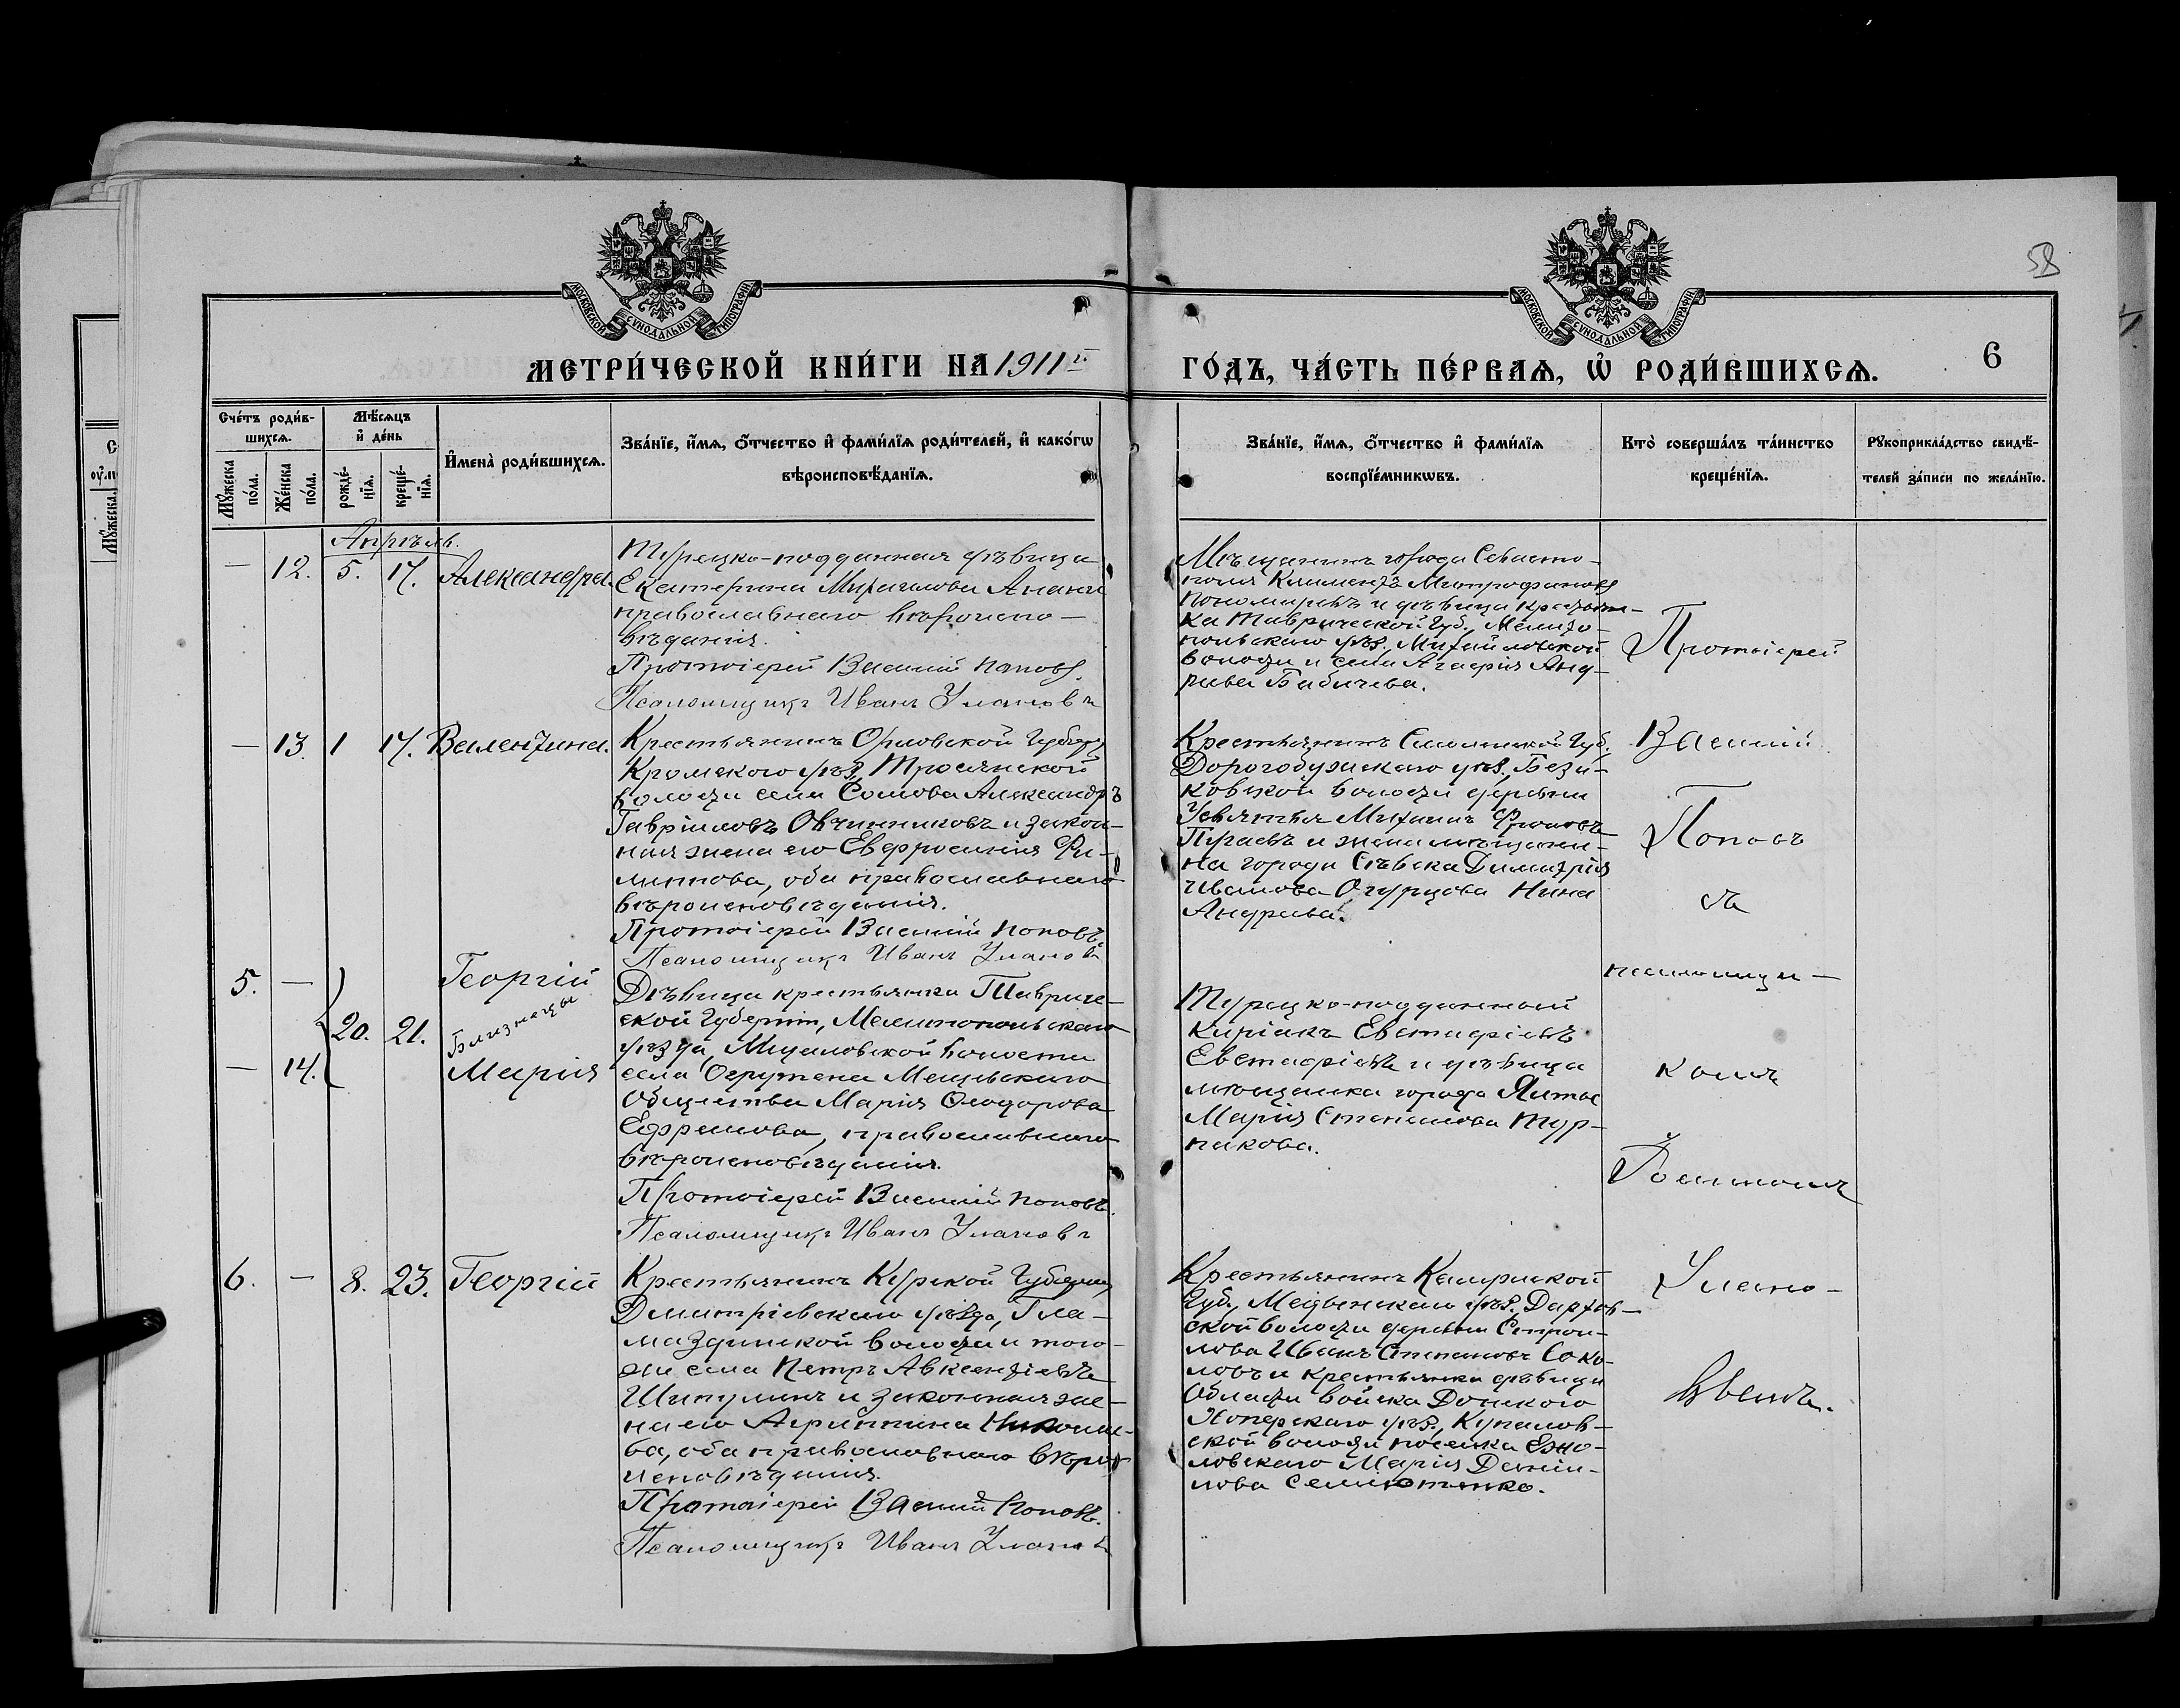 58
МОСКОВСКОЙ СУНОДАЛЬНОЙ ТИПОГРАФІИ
МОСКОВСКОЙ СУНОДАЛЬНОЙ ТИПОГРАФІИ
МЕТРИ́ЧЕСКОЙ КНИ́ГИ НА 1911й
ГО́ДЪ, ЧА́СТЬ ПЕ́РВАѦ, Ѡ҆ РОДИ́ВШИХСѦ. 6
Сче́тъ роди́в-
шихсѧ.
Мꙋ́жеска по́ла.
Же́нска по́ла.
Мѣ́сѧцъ
и҆ де́нь
рожде́-
нїѧ.
креще́-
нїѧ.
И҆мена̀ роди́вшихсѧ.
Зва́нїе, и҆́мѧ, ѻ҆́тчество и҆ фами́лїѧ роди́телей, и҆ како́гѡ
вѣроисповѣ́данїѧ.
Зва́нїе, и҆́мѧ, ѻ҆́тчество и҆ фами́лїѧ
воспрїе́мникѡвъ.
Кто̀ соверша́лъ та́инство
креще́нїѧ.
Рꙋкоприкла́дство свидѣ́-
телей за́писи по жела́нїю.
Апрѣль.
— 12. 5. 17. Александра.
Турецко-подданная дѣвица
Екатерина Михаилова
православнаго вѣроиспо-
вѣданія.
Протоіерей Василій Поповъ.
Псаломщикъ Иванъ Улановъ
Мѣщанинъ города Севасто-
поля Климентъ Митрофановъ
Пономаревъ и дѣвица крестьян-
ка Таврической Губ., Мелито-
польскаго уѣз., Михайловской
волости и села Агафія Анд-
реева Бабичева.
— 13. 1 17. Валентина.
Крестьянинъ Орловской Губерн,
Кромскаго уѣз, Тросянской
волости села Сомова Александръ
Гавріиловъ Овчинниковъ и закон-
ная жена его Евфросинія Фи-
липпова, оба православнаго
вѣроисповѣданія.
Протоіерей Василій Поповъ.
Псаломщикъ Иванъ Улановъ
Крестьянинъ Смоленской Губ.
Дорогобужскаго уѣз.,
волости деревни
Михаилъ Фроловъ
и жена мѣщани-
на города Сѣвска Димитрія
Иванова Огурцова Нина
Андреева.
5. —
— 14. 20. 21.
Георгій
Близнецы
Марія
Дѣвица крестьянка Тавриче-
ской Губерніи, Мелитопольскаго
уѣзда, волости
села
Общества Марія Ѳеодорова
Ефремова, православнаго
вѣроисповѣданія.
Протоіерей Василій Поповъ.
Псаломщикъ Иванъ Улановъ
Турецко-подданный
Киріакъ Евстафіевъ
Евстафіевъ и дѣвица
мѣщанка города Ялты
Марія Степанова Тур-
пакова.
6. — 8. 23. Георгій
Крестьянинъ Курской Губерніи,
Дмитріевскаго уѣзда, Гла-
маздинской волости и того
же села Петръ Авксентіевъ
Шипулинъ и законная же-
на его Агриппина Николае-
ва, оба православнаго вѣро-
исповѣданія.
Протоіерей Василій Поповъ.
Псаломщикъ Иванъ Улановъ
Крестьянинъ Калужской
Губ., Медынскаго уѣз.,
ской волости деревни
Иванъ Степановъ Соко-
ловъ и крестьянка дѣвица
Области войска Донского
Хоперскаго
ской волости поселка
ловскаго Марія Дані-
лова
Протоіерей
Василій
Поповъ
съ
псаломщи-
комъ
Іоанномъ
Улано-
вымъ.